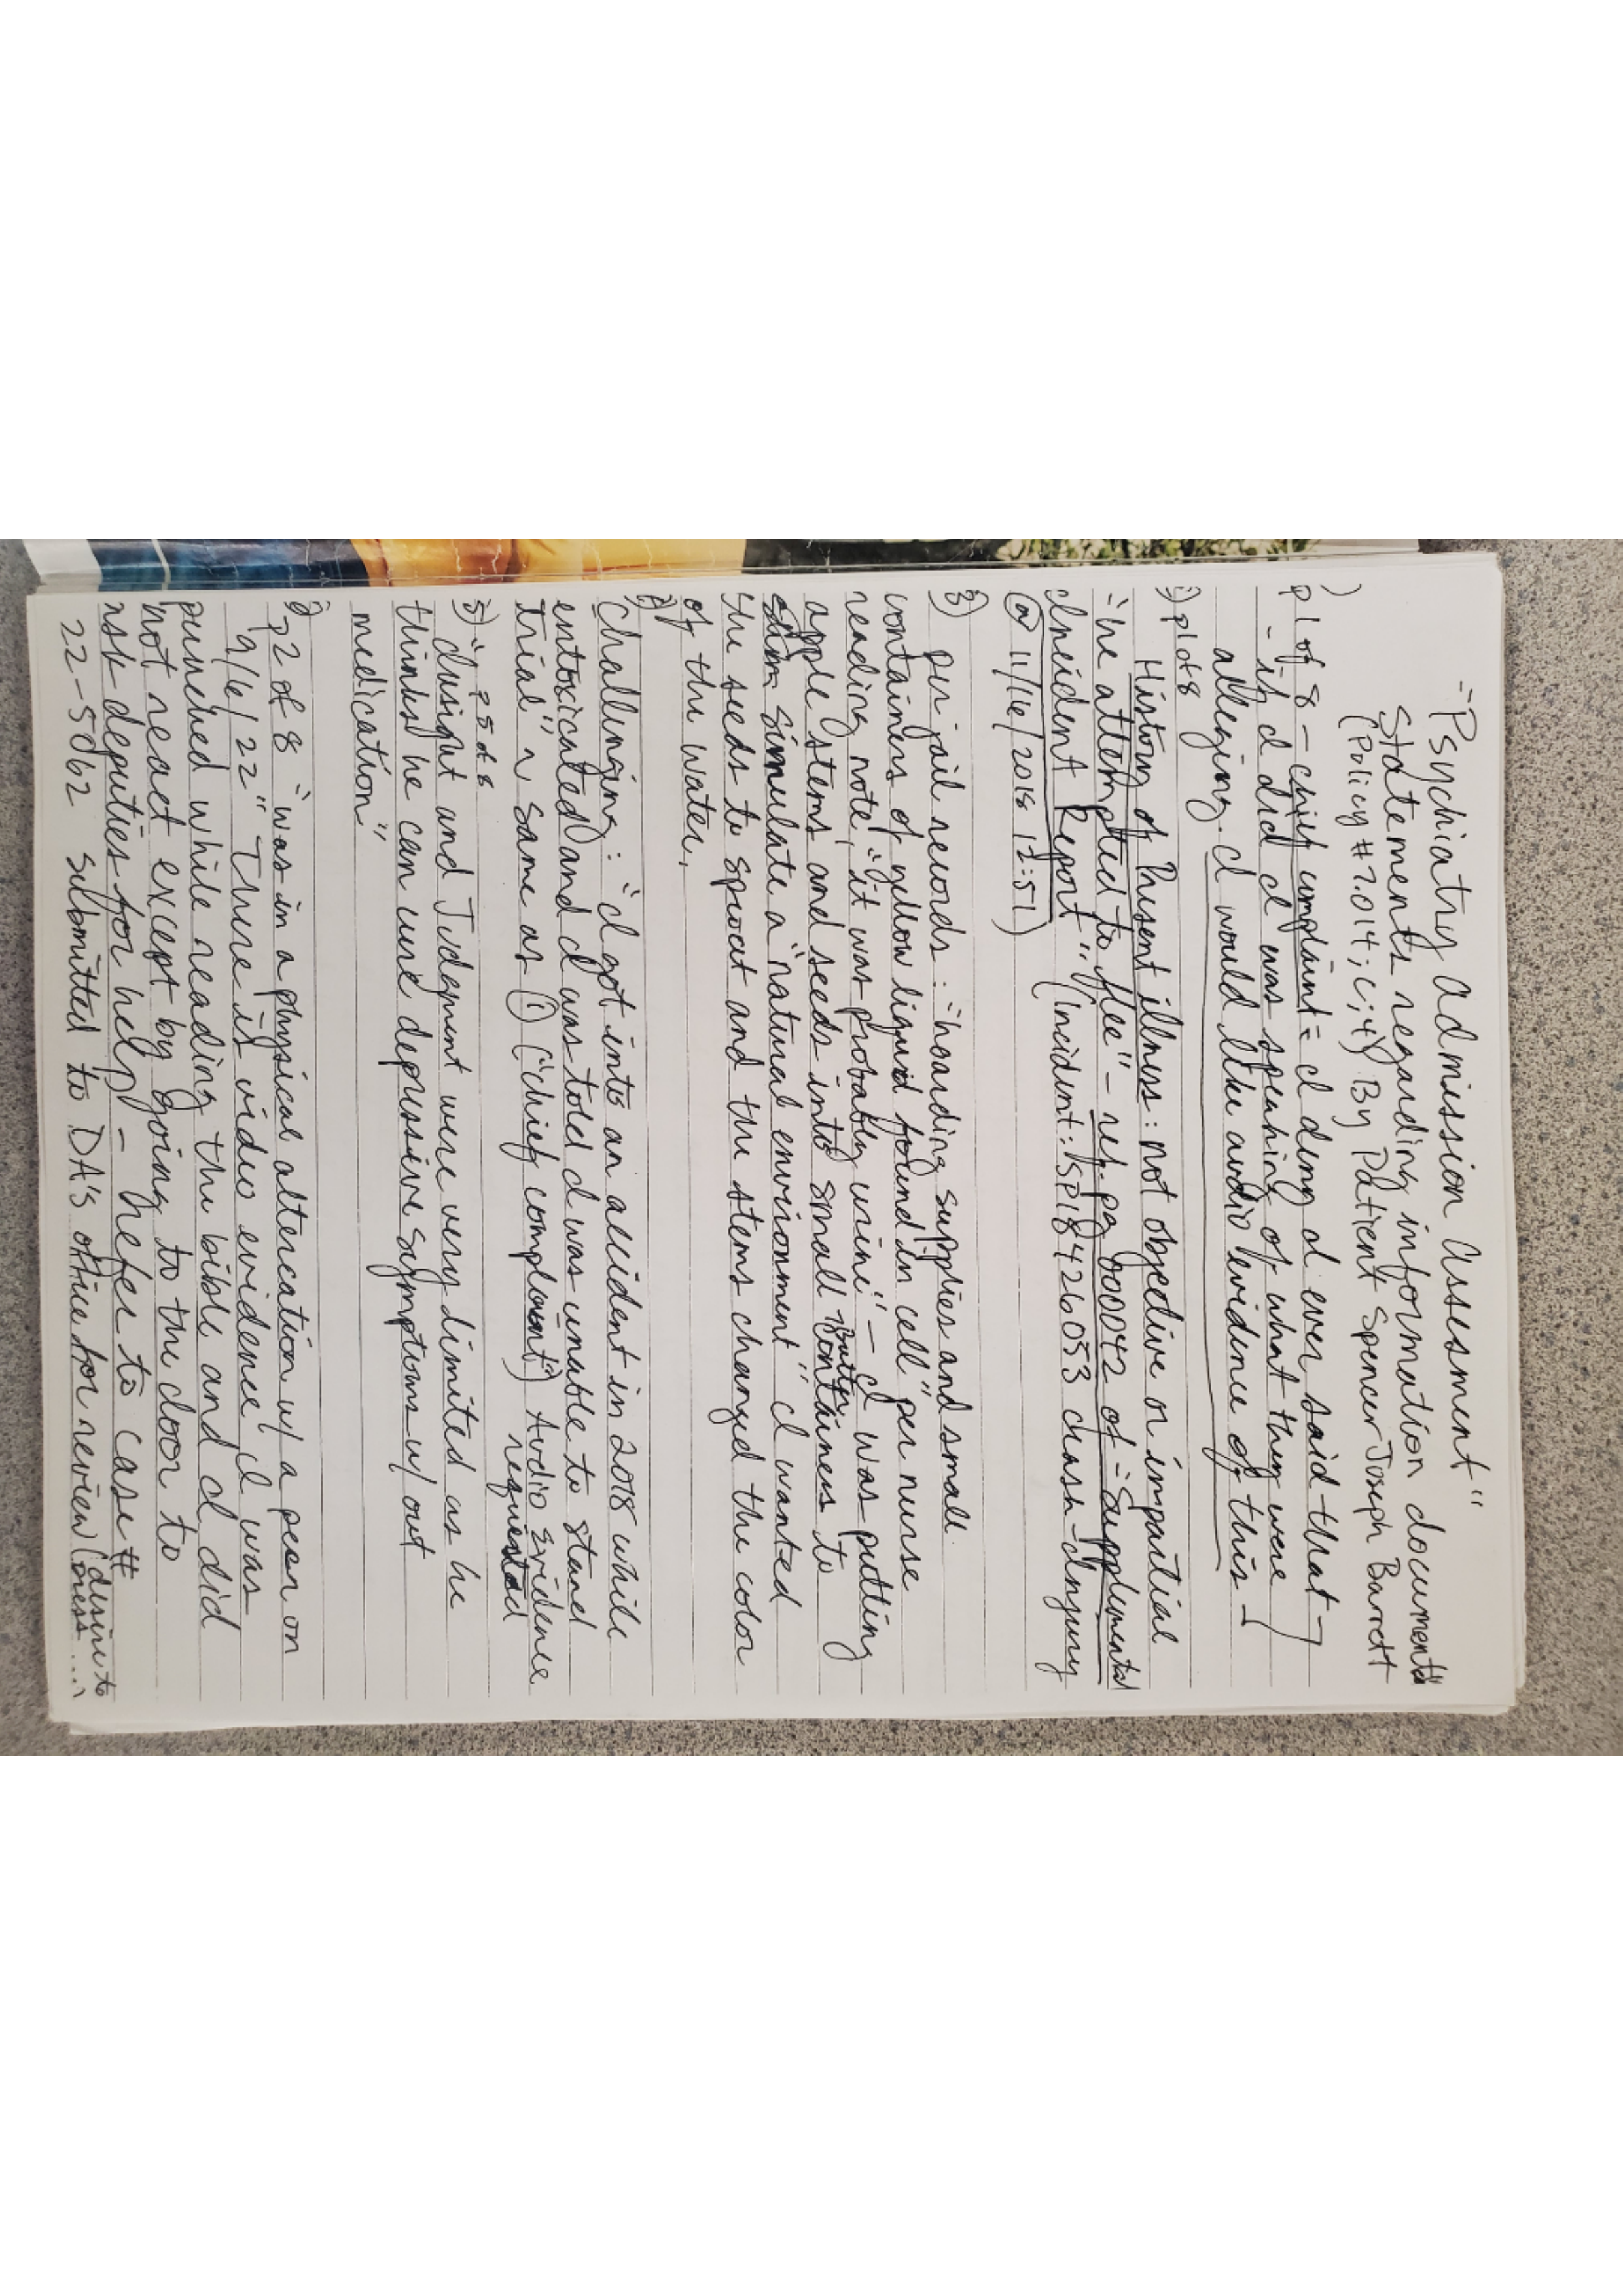 "Psychiatry Admission Assesment"
Statements regarding information documented
(Policy # 7.014; C; 4) By Patient Spencer Joseph Barrett
) p 1 of 8 - chief complaint = I deny I ever said that -
- if I did I was speaking of what they were
alleging. I would like audio evidence of this -
) p1 of 8
History of Present illness: not objective or impartial
"he attempted to flee" - ref. pg 000042 of "Supplemental
Incident Report" (incident: SP18426053 crash-Injury
@ 11/16/2018 12:51)
3) per jail records: "hoarding supplies and small
containers of yellow liquid found in cell" per nurse
reading note, "it was probably urine" - I was putting
apple stems and seeds into small Butter containers to
simulate a "natural environment" I wanted
the seeds to sprout and the stems changed the color
of the water.
Challenging: "I got into an accident in 2018 while
entoxicated and I was told I was unable to stand
trial" ~ same as (1) ("chief complaint") Audio Evidence
requested
5) "p 5 of 8
"Insight and Judgment were very limited as he
thinks he can cure depressive symptoms w/out
medication"
p 2 of 8 "was in a physical altercation w/ a peer on
9/6/22" There is video evidence I was
punched while reading the bible and I did
not react except by going to the door to
ask deputies for help - Refer to case #
22-5062 submitted to DA's office for review (desire to